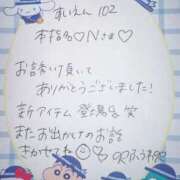 すいえん 102
本指名♡Nさま♡
お誘い頂いて
ありがとうございました!
新アイテム登場です笑
またお出かけのお話
きかせてね